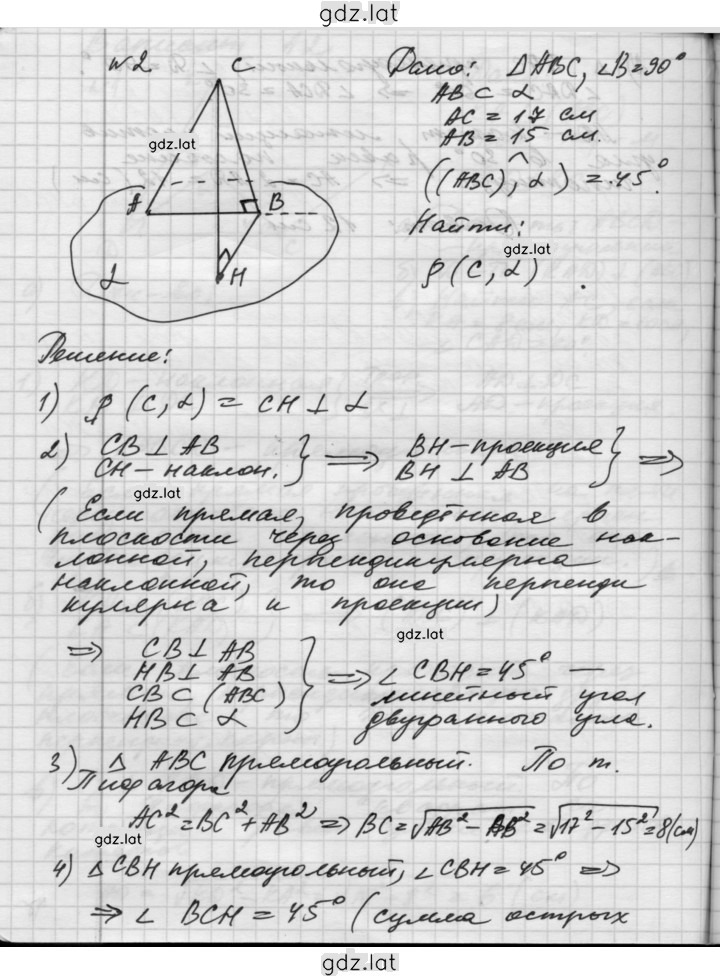 gdz.lat
№2
C
Дано: △ABC, ∠B=90°
AB ⊂ α
AC = 17 см
AB = 15 см.
((ABC)^, α) = 45°.
Найти:
gdz.lat
ρ (C, α) .
gdz.lat
A
B
α
H
Решение:
1) ρ (C, α) = CH ⊥ α
2) CB ⊥ AB
CH – наклон. } ⟹ BH – проекция
BH ⊥ AB } ⟹
gdz.lat
(Если прямая, проведённая в
плоскости через основание нак-
лонной, перпендикулярна
наклонной, то она перпенди
кулярна и проекции)
gdz.lat
⟹ CB ⊥ AB
HB ⊥ AB
CB ⊂ (ABC)
HB ⊂ α } ⟹ ∠CBH = 45° —
линейный угол
двугранного угла.
3) △ ABC прямоугольный. По т.
Пифагора
AC² = BC² + AB² ⟹ BC = √AB² – AB² = √17² – 15² = 8(см)
gdz.lat
4) △CBH прямоугольный, ∠CBH = 45° ⟹
⟹ ∠ BCH = 45° (сумма острых
gdz.lat